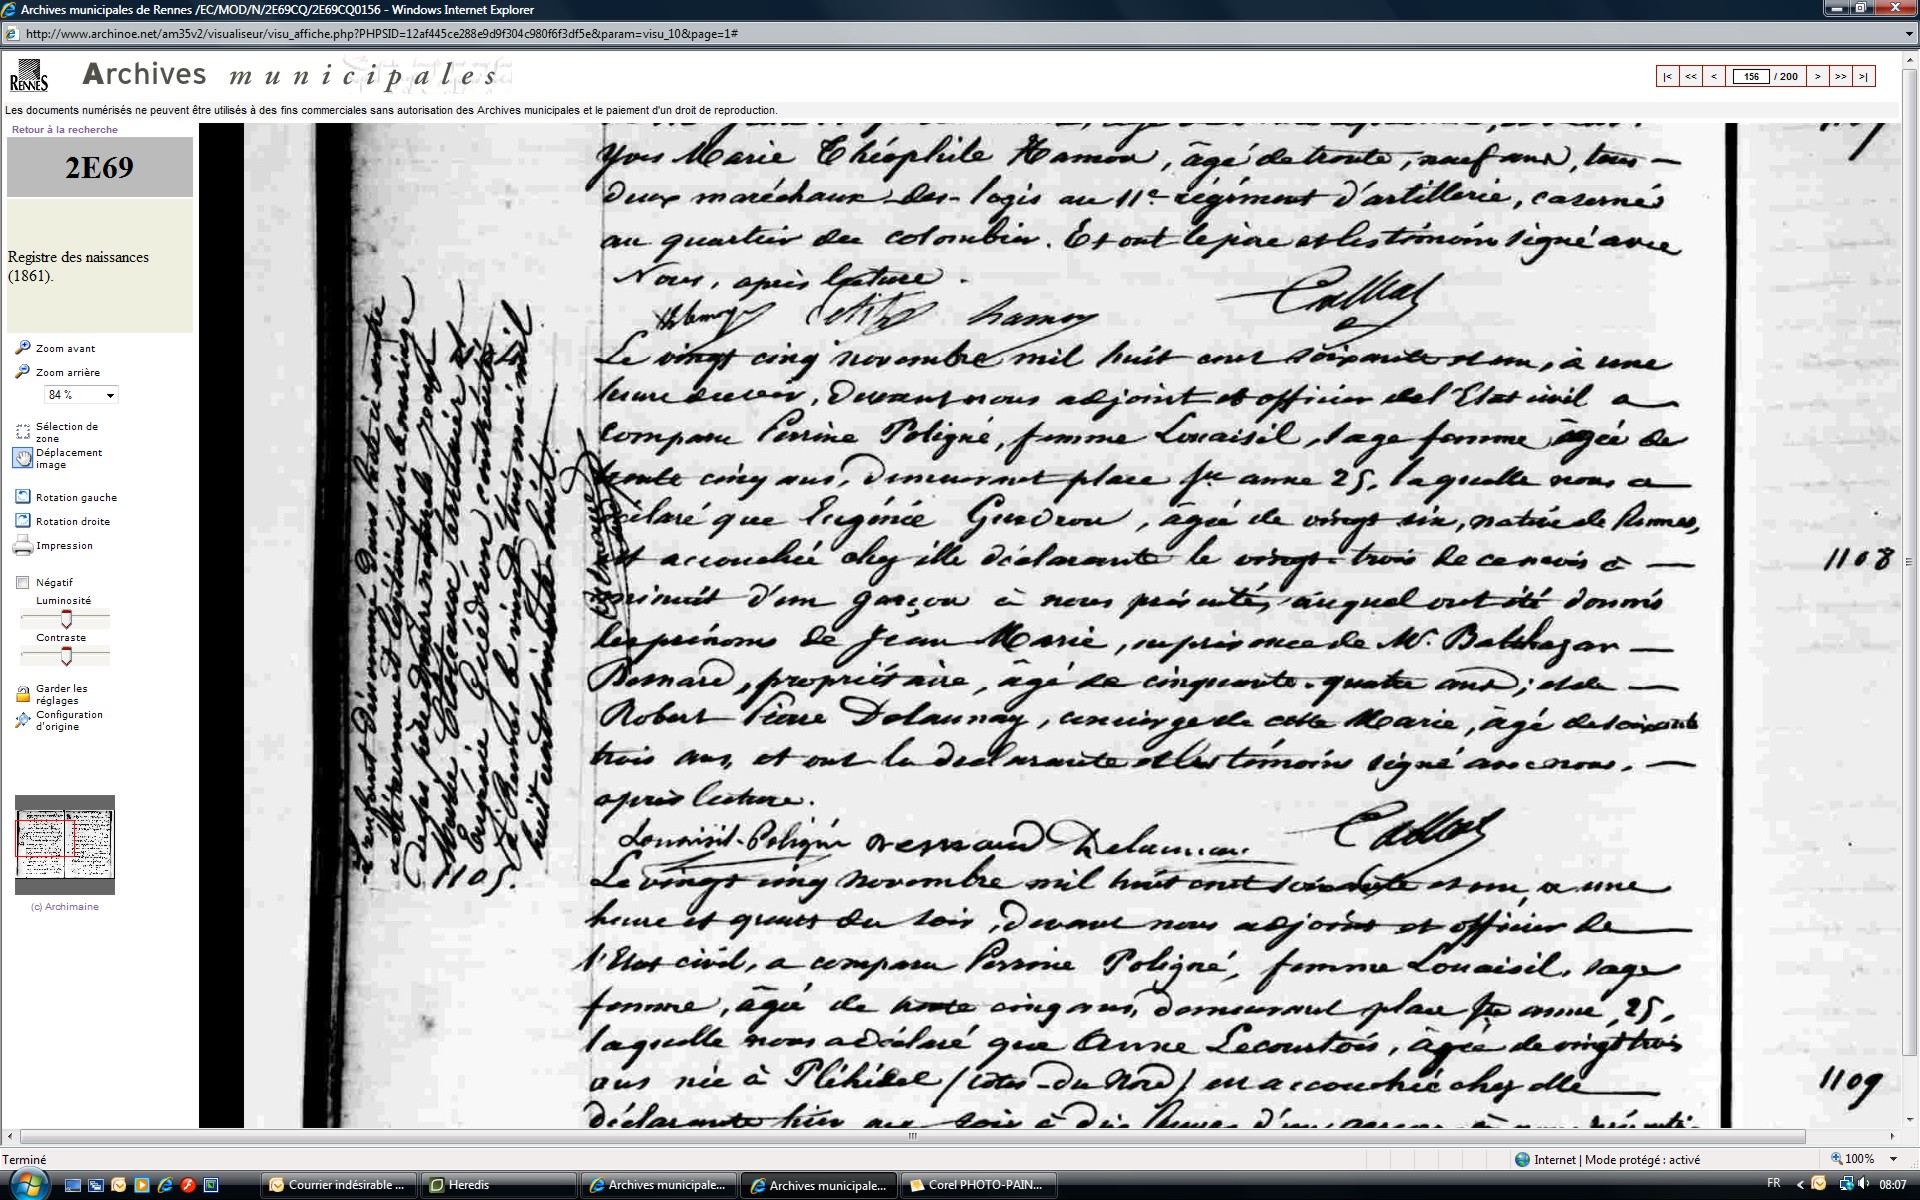 Archives municipales de Rennes /EC/MOD/N/2E69CQ/2E69CQ0156 - Windows Internet Explorer
http://www.archinoe.net/am35v2/visualiseur/visu_affiche.php?PHPSID=12af445ce288e9d9f304c980f6f3df5e&param=visu_10&page=1#
RENNES
Archives municipales
|< << < 156 / 200 > >> >|
Les documents numérisés ne peuvent être utilisés à des fins commerciales sans autorisation des Archives municipales et le paiement d'un droit de reproduction.
Retour à la recherche
2E69
Registre des naissances
(1861).
Zoom avant
Zoom arrière
84 %
Sélection de
zone
Déplacement
image
Rotation gauche
Rotation droite
Impression
Négatif
Luminosité
Contraste
Garder les
réglages
Configuration
d'origine
(c) Archimaine
Yves Marie Théophile Hamon, âgé de trente, neuf ans, tous
deux maréchaux-des-logis au 11e régiment d'artillerie, casernés
au quartier du colombier. Et ont le père et les témoins signé avec
Nous, après lecture.
hamon
Le vingt cinq novembre mil huit cent soixante et un, à une
heure du soir, Devant nous adjoint et officier de l'Etat civil a
comparu Perrine Poligné, femme Louaisil, sage femme âgée de
trente cinq ans, demeurant place Ste anne 25, laquelle nous a
déclaré que Eugénie Guédron, âgée de vingt six, native de Rennes,
est accouchée chez elle déclarante le vingt-trois de ce mois à
minuit d'un garçon à nous présenté, auquel ont été donnés
les prénoms de Jean Marie, en présence de Mr. Balthazar
Bernard, propriétaire, âgé de cinquante-quatre ans; et de
Robert Pierre Delaunay, concierge de cette Mairie, âgé de soixante
trois ans, et ont la déclarante et les témoins signé avec nous,
après lecture.
Louaisil-Poligné Bernard Delaunay
Le vingt cinq novembre mil huit cent soixante et un, a une
heure et quart du soir, Devant nous adjoint et officier de
l'Etat civil, a comparu Perrine Poligné, femme Louaisil, sage
femme, âgée de trente cinq ans, demeurant place Ste anne, 25,
laquelle nous a déclaré que Anne Lecourtois, âgée de vingt trois
ans née à Pléhédel (côtes-du-Nord) est accouchée chez elle
déclarante hier au soir à dix heures d'un garçon à nous présenté
1108
1109
L'enfant dénommé dans l'acte ci-contre
a été reconnu et légitimé par le mariage
de ses père et mère naturels
Eugénie Guédron contracté
à Rennes le vingt huit mai mil
huit cent soixante huit
1105.
Terminé
Internet | Mode protégé : activé
100%
Courrier indésirable ...
Heredis
Archives municipale...
Archives municipale...
Corel PHOTO-PAIN...
FR
08:07